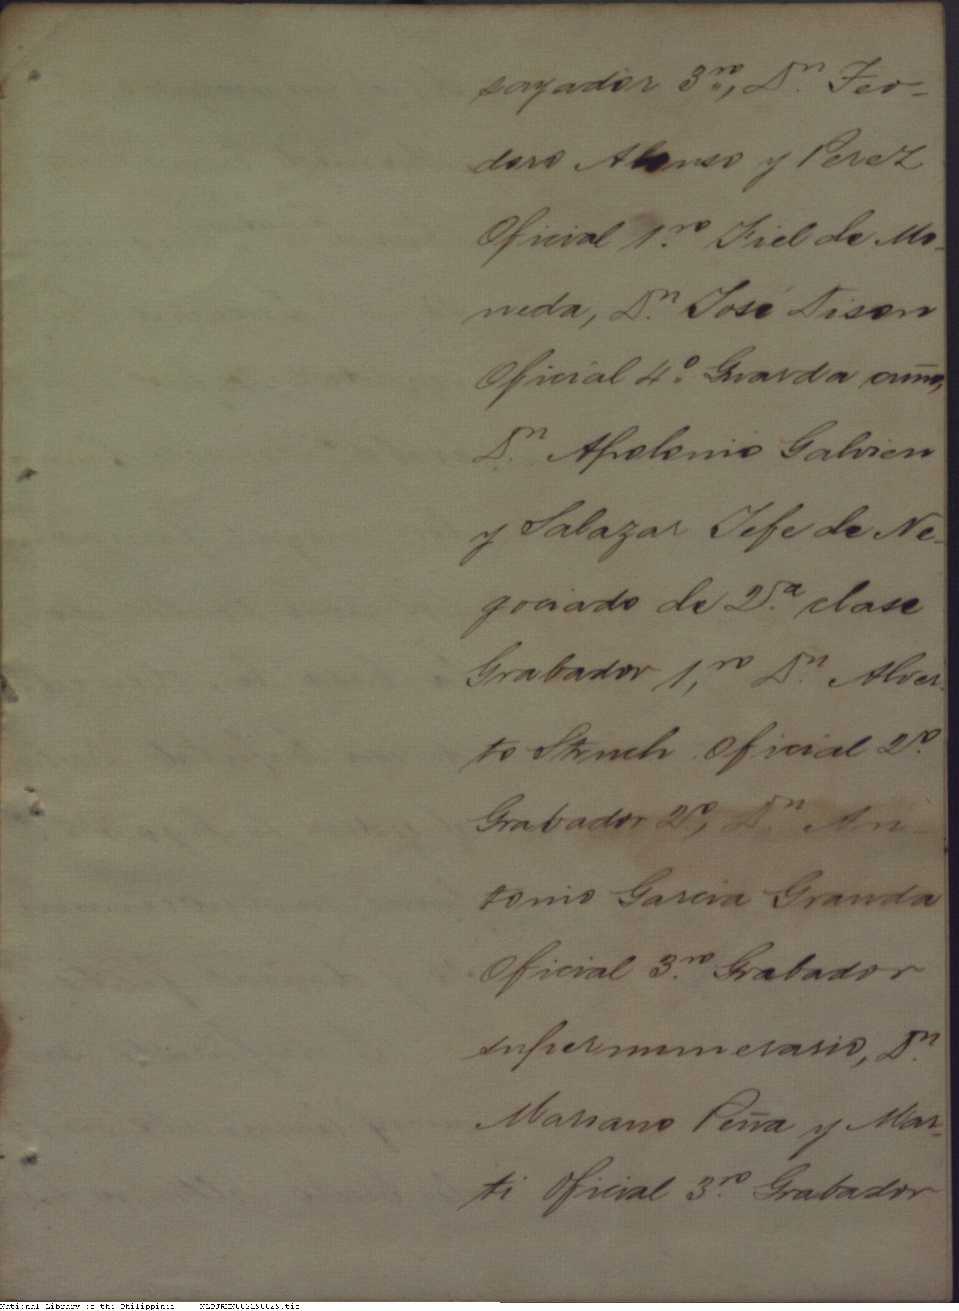 sayador 3.ro, D.n Teo-
doro Alonso y Perez
Oficial 1.ro Fiel de Mo-
neda, D.n José Tison
Oficial 4.o Guarda cuño,
D.n Apolonio Galvien
y Salazar Jefe de Ne-
gociado de 2.a clase
Grabador 1,ro D.n Alver-
to Oficial 2o
Grabador 2.o, D.n An-
tonio Garcia Granda
Oficial 3.ro Grabador
supernumerario, D.n
Mariano Peña y Mar-
ti Oficial 3.ro Grabador
National Library of the Philippines